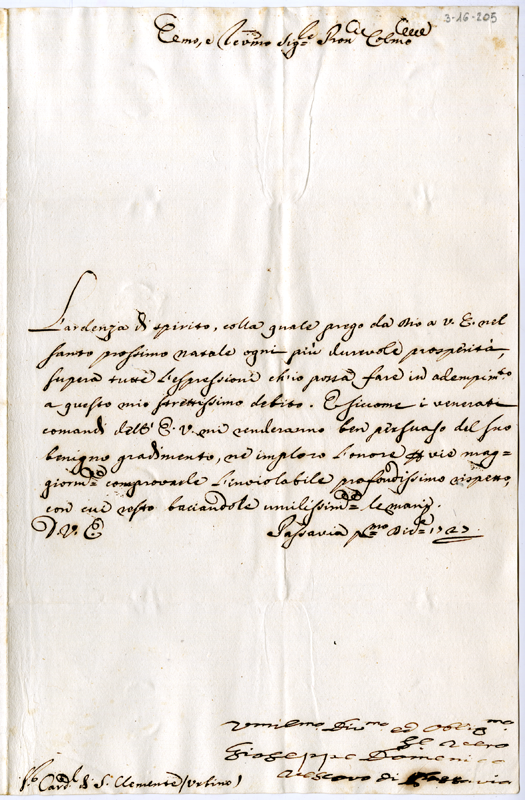 3-16-205
Emo, e Revmo Sigre Pron Colmo
L'ardenza di spirito, colla quale prego da Dio a V. E. nel
santo prossimo natale ogni più durevole prosperità,
supera tutte l'espressioni ch'io possa fare in adempimto
a questo mio strettissimo debito. E siccome i venerati
comandi dell' E. V. mi renderanno ben persuaso del suo
benigno gradimento, ne imploro l'onore p vie mag=
giormte comprovarle l'inviolabile profondissimo rispetto,
con cui resto baciandole umilissimte le mani.
D. V. E.
Passavia pmo Dice 1727.
Umilmo Divmo ed Obligmo
Servo vero
Gioseppe Domenico
Vescovo di Passavia
Sr Cardl di S. Clemente (Urbino)